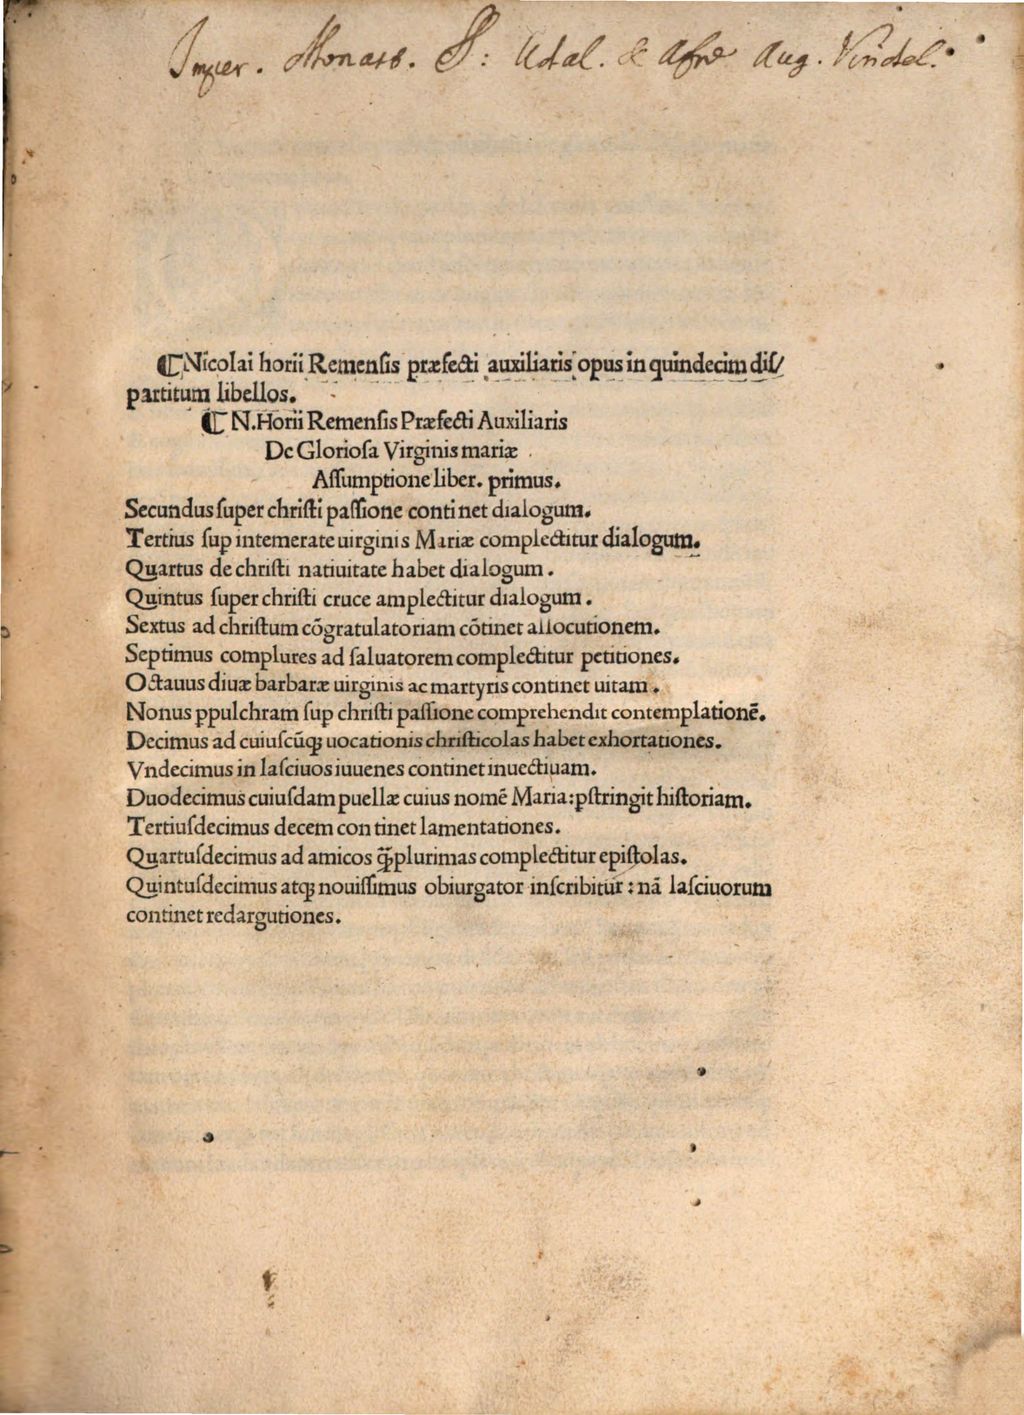 Imper. Monast. S: Udal. & Afræ Aug. Vindel.
⸿ Nicolai horii Remenſis præfecti auxiliaris opus in quindecim diſ/
partitum libellos.
⸿ N. Horii Remenſis Præfecti Auxiliaris
De Glorioſa Virginis mariæ
Aſſumptione liber. primus.
Secundus ſuper chriſti paſſione continet dialogum.
Tertius ſup intemerate uirginis Mariæ complectitur dialogum.
Quartus de chriſti natiuitate habet dialogum.
Quintus ſuper chriſti cruce amplectitur dialogum.
Sextus ad chriſtum cōgratulatoriam cōtinet allocutionem.
Septimus complures ad ſaluatorem complectitur petitiones.
Octauus diuæ barbaræ uirginis ac martyris continet uitam.
Nonus ꝓpulchram ſup chriſti paſſione comprehendit contemplationē.
Decimus ad cuiuſcūqꝫ uocationis chriſticolas habet exhortationes.
Vndecimus in laſciuos iuuenes continet inuectiuam.
Duodecimus cuiuſdam puellæ cuius nomē Maria: pſtringit hiſtoriam.
Tertiuſdecimus decem continet lamentationes.
Quartuſdecimus ad amicos q̄ꝫplurimas complectitur epiſtolas.
Quintuſdecimus atqꝫ nouiſſimus obiurgator inſcribitur: nā laſciuorum
continet redargutiones.